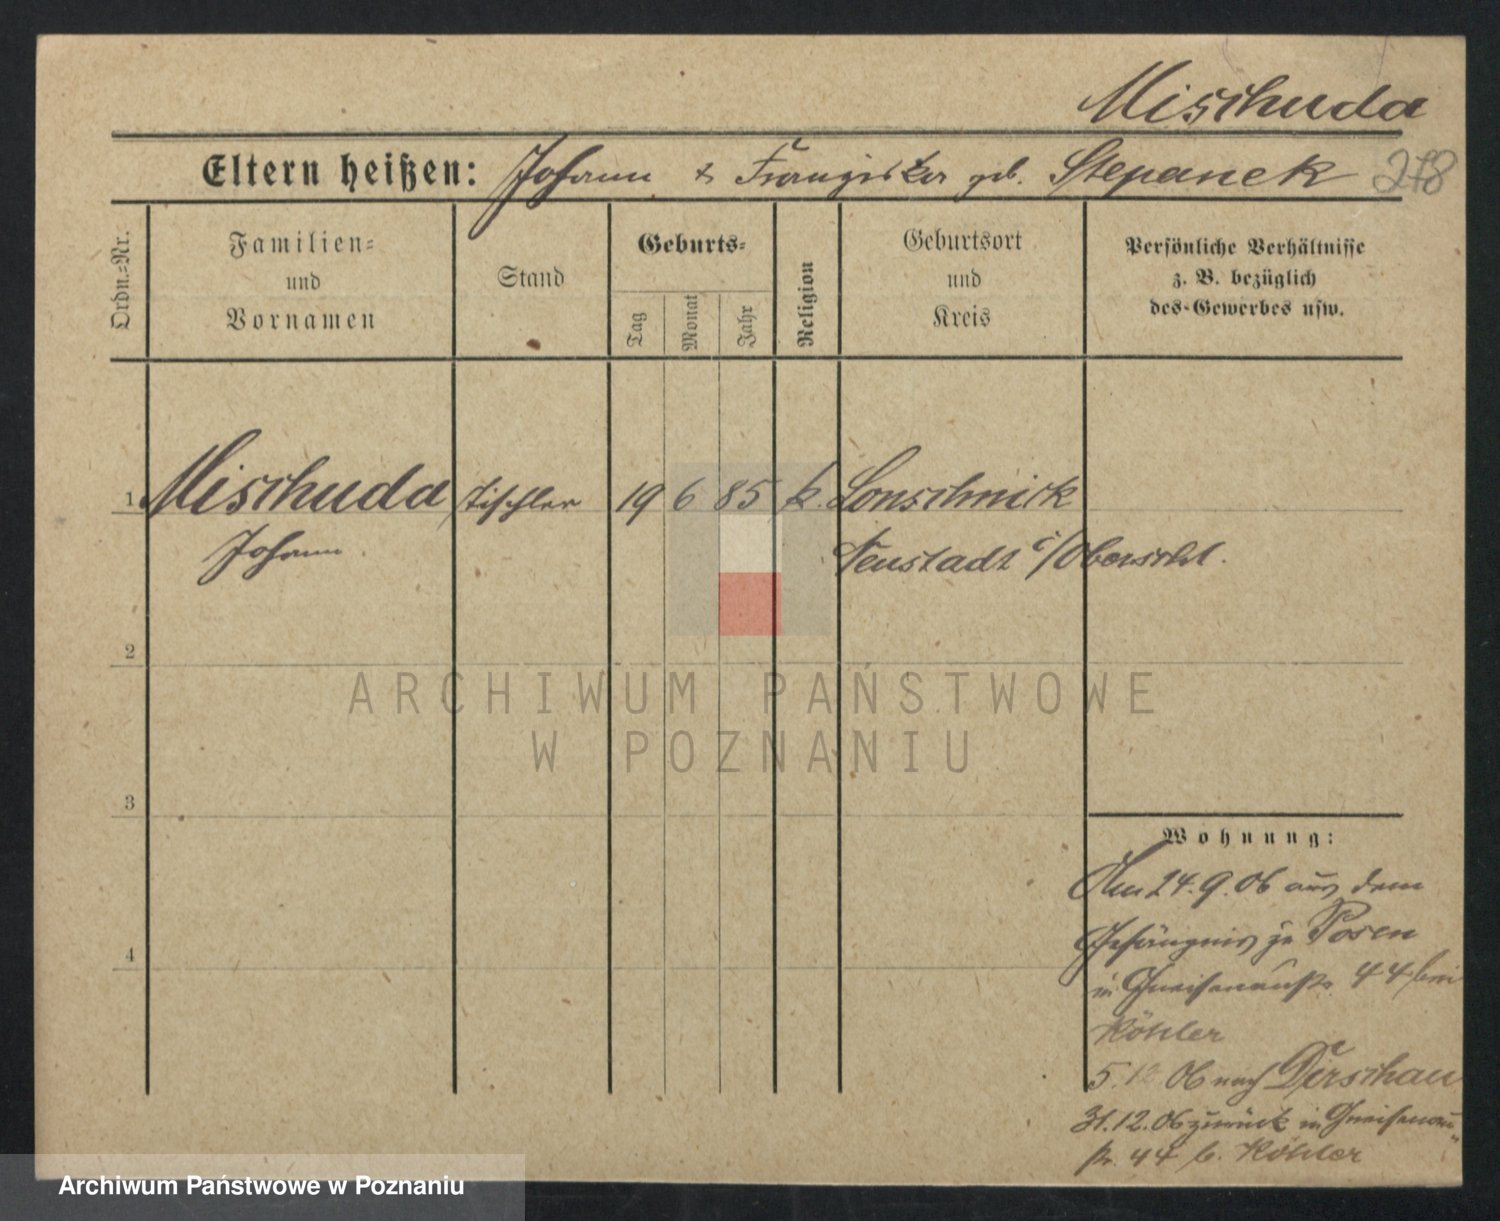 Mischuda
Eltern heißen: Johann & Franziska geb. Stepanek 278
Ordn.=Nr.
Familien=
und
Vornamen
Stand
Geburts=
Tag
Monat
Jahr
Religion
Geburtsort
und
Kreis
Persönliche Verhältnisse
z. B. bezüglich
des Gewerbes usw.
1 Mischuda Tischler 19 6 85 k. Lonschnick
Johann Neustadt i/Oberschl.
2
3
4
Wohnung:
Am 24.9.06 aus dem
Gefängnis zu Posen
in Gneisenaustr. 44 bei
Köhler
5.12 06 nach Dirschau
31.12.06 zurück in Gneisenau-
str. 44 b. Köhler
ARCHIWUM PAŃSTWOWE
W POZNANIU
Archiwum Państwowe w Poznaniu